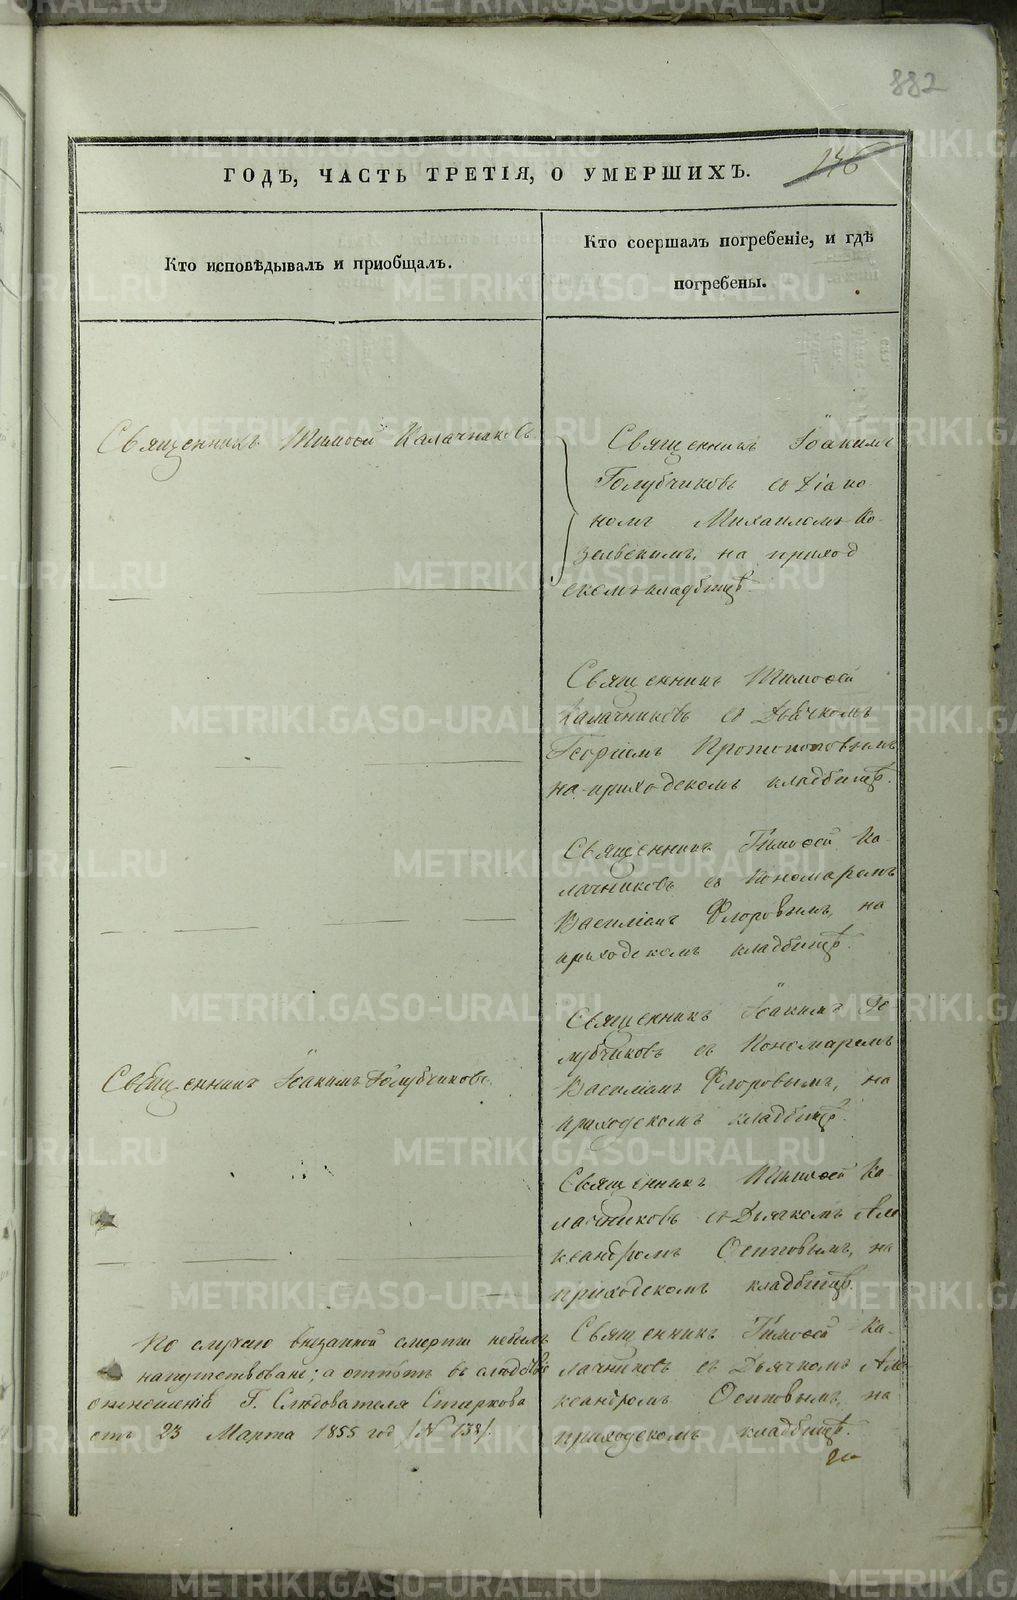 882
146
ГОДЪ, ЧАСТЬ ТРЕТІЯ, О УМЕРШИХЪ.
Кто исповѣдывалъ и приобщалъ.
Кто соершалъ погребеніе, и гдѣ
погребены.
Священникъ Тимоѳей Калачниковъ
Священникъ Іоакимъ
Голубчиковъ съ Діако
номъ Михаиломъ Ко-
зельскимъ, на приход
скомъ кладбищѣ.
Священникъ Тимоѳей
Калачниковъ съ Дьячкомъ
Георгіемъ Протопоповымъ
на приходскомъ кладбищѣ.
Священникъ Тимоѳей Ка-
лачниковъ съ Пономаремъ
Василіемъ Флоровымъ, на
приходскомъ кладбищѣ.
Священникъ Іоакимъ Голубчиковъ.
Священникъ Іоакимъ Го
лубчиковъ съ Пономаремъ
Василіемъ Флоровымъ, на
приходскомъ кладбищѣ.
Священникъ Тимоѳей Ка-
лачниковъ съ Дьячкомъ Але
ксандромъ Осиповымъ, на
приходскомъ кладбищѣ.
По случаю внезапной смерти небылъ
напутствованъ; а отпѣтъ въ слѣдствіе
отношенія Г. Слѣдователя Стиркова
отъ 23 Марта 1855 год /N 138/.
Священникъ Тимоѳей Ка-
лачниковъ съ Дьячкомъ Але
ксандромъ Осиповымъ, на
приходскомъ кладбищѣ.
METRIKI.GASO-URAL.RU